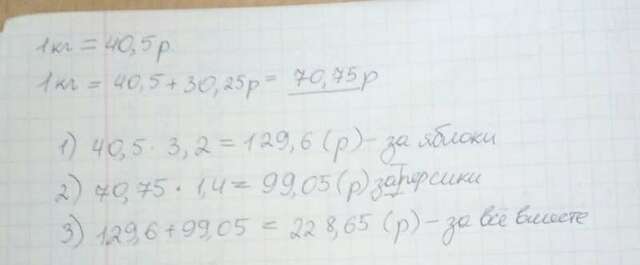 1кг = 40,5р
1кг = 40,5 + 30,25р = 70,75р
1) 40,5 · 3,2 = 129,6 (р) - за яблоки
2) 70,75 · 1,4 = 99,05 (р) за персики
3) 129,6 + 99,05 = 228,65 (р) - за всё вместе